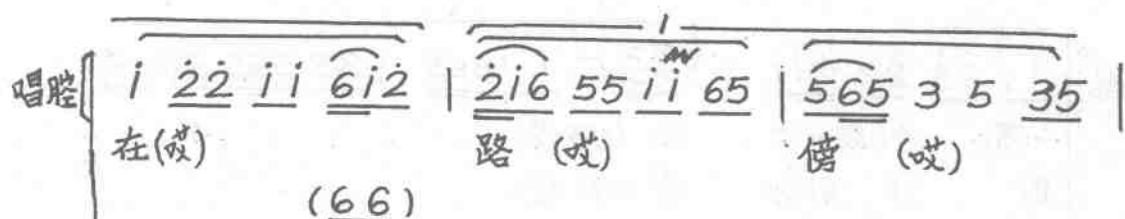 1
唱腔 i̇ 2̇2̇ i̇i̇ 6i̇2̇ | 2̇i̇6 55 i̇i̇ 65 | 565 3 5 35 |
在(哎) 路 (哎) 傍 (哎)
(6 6)